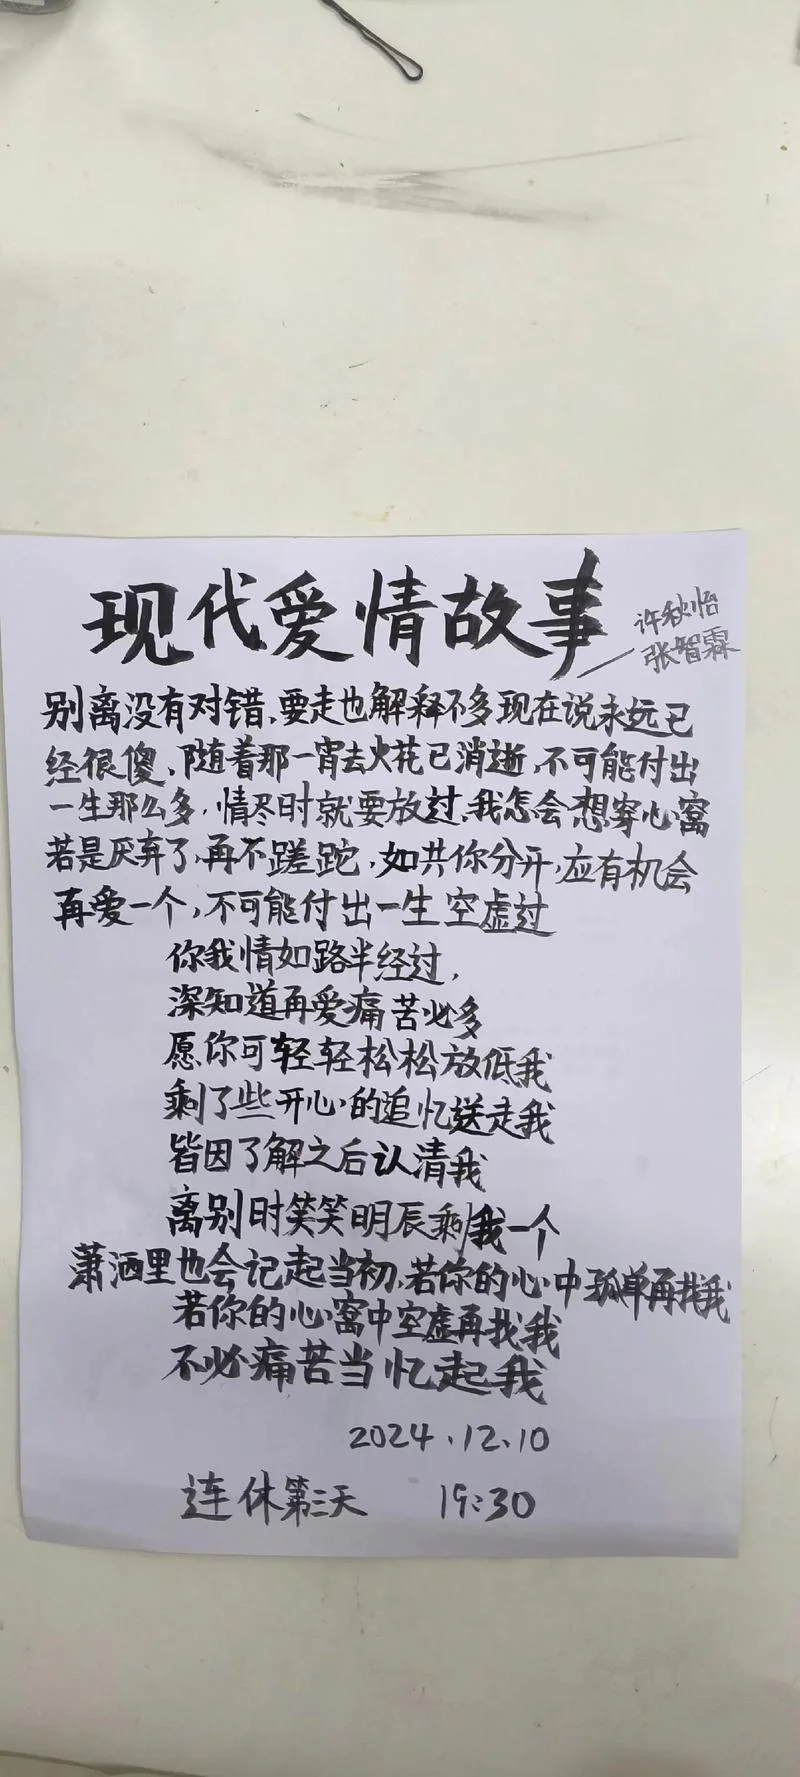 现代爱情故事
许秋怡
张智霖
别离没有对错,要走也解释不多现在说永远已
经很傻、随着那一宵去火花已消逝,不可能付出
一生那么多,情尽时就要放过,我怎会想穿心窝
若是厌弃了,再不蹉跎,如共你分开,应有机会
再爱一个,不可能付出一生空虚过
你我情如路半经过,
深知道再爱痛苦必多
愿你可轻轻松松放低我
剩了些开心的追忆送走我
皆因了解之后认清我
离别时笑笑明辰剩我一个
萧洒里也会记起当初,若你的心中孤单再找我
若你的心窝中空虚再找我
不必痛苦当忆起我
2024.12.10
连休第三天 19:30